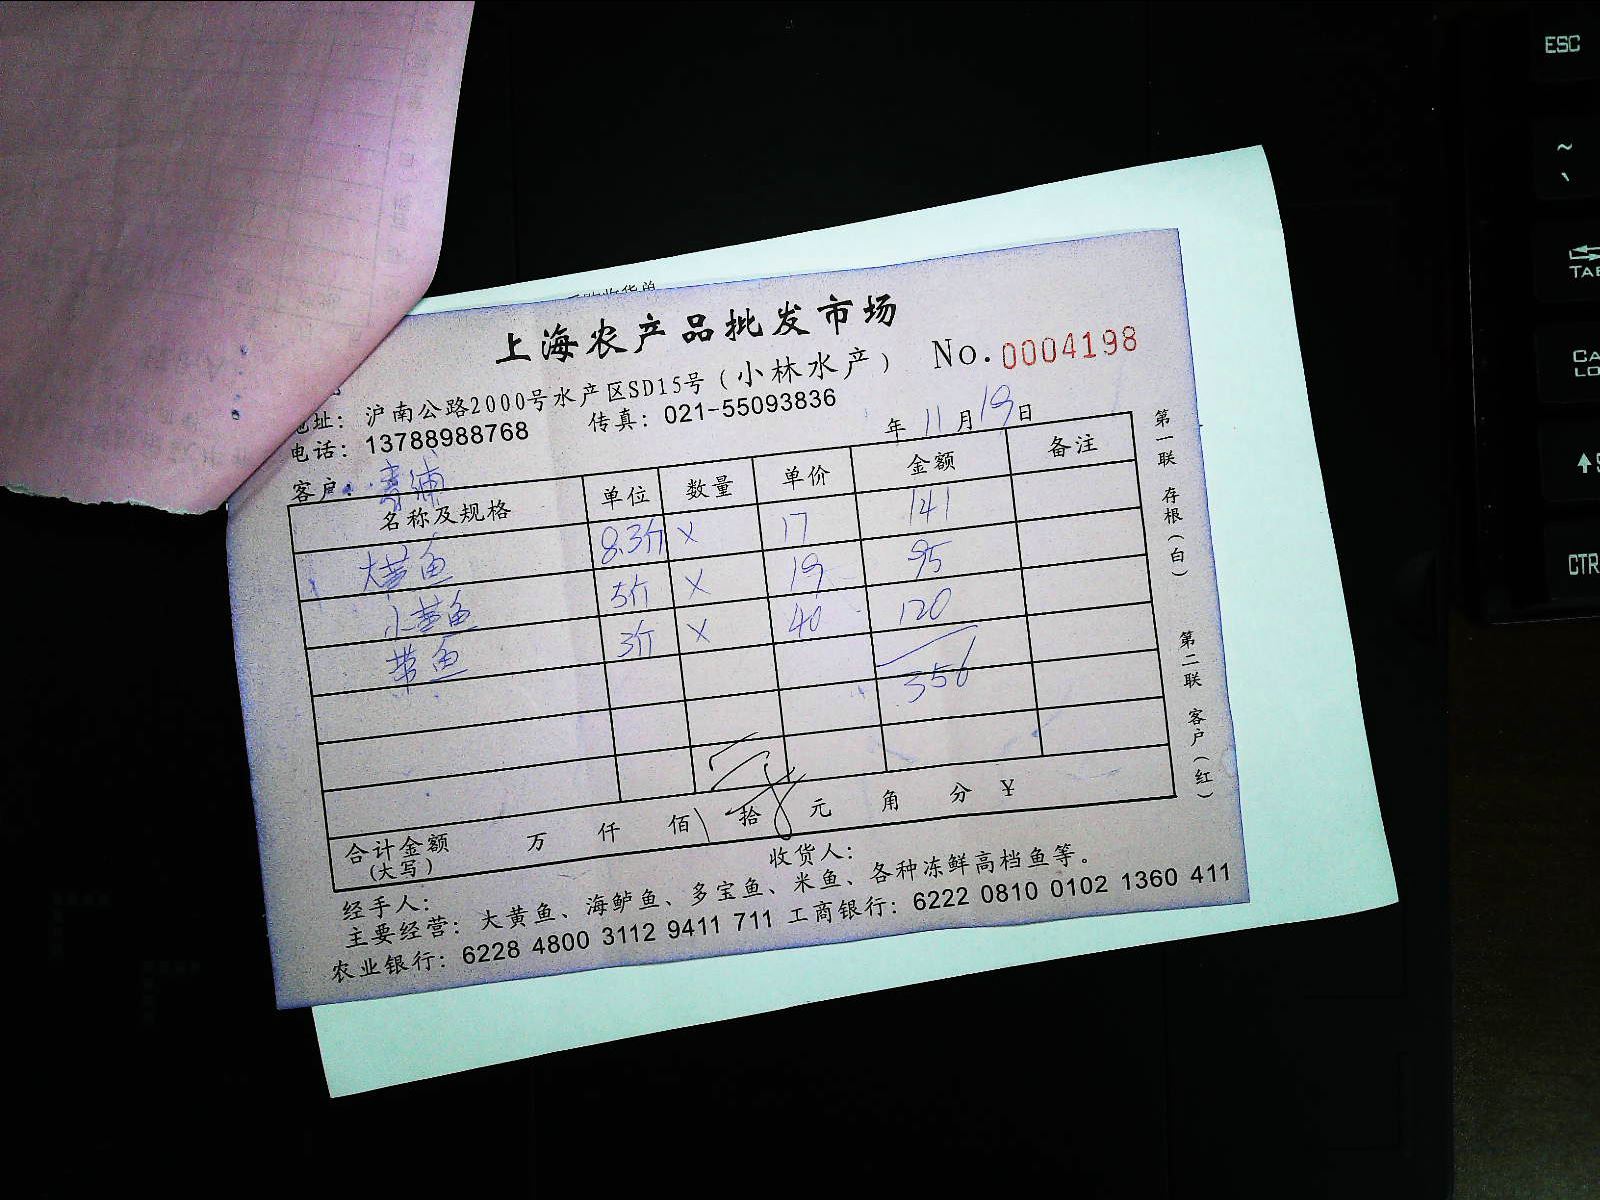 上海农产品批发市场
No.0004198
地址：沪南公路2000号水产区SD15号（小林水产）
电话：13788988768 传真：021-55093836
年 11 月 19 日
客户：青浦
名称及规格 单位 数量 单价 金额 备注
大黄鱼 8.3斤 × 17 141
小黄鱼 5斤 × 19 95
带鱼 3斤 × 40 120
356
合计金额 万 仟 佰 拾 元 角 分 ¥
(大写)
经手人： 收货人：
主要经营：大黄鱼、海鲈鱼、多宝鱼、米鱼、各种冻鲜高档鱼等。
农业银行：6228 4800 3112 9411 711 工商银行：6222 0810 0102 1360 411
第一联 存根（白） 第二联 客户（红）
ESC
~
TAB
CTR